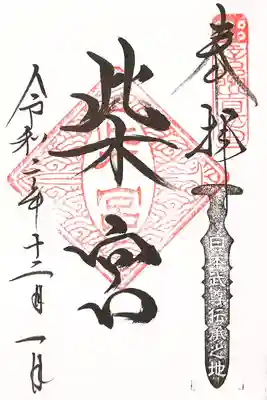 奉拝
日本武尊伝承之地
柴宮
令和二年十二月一日